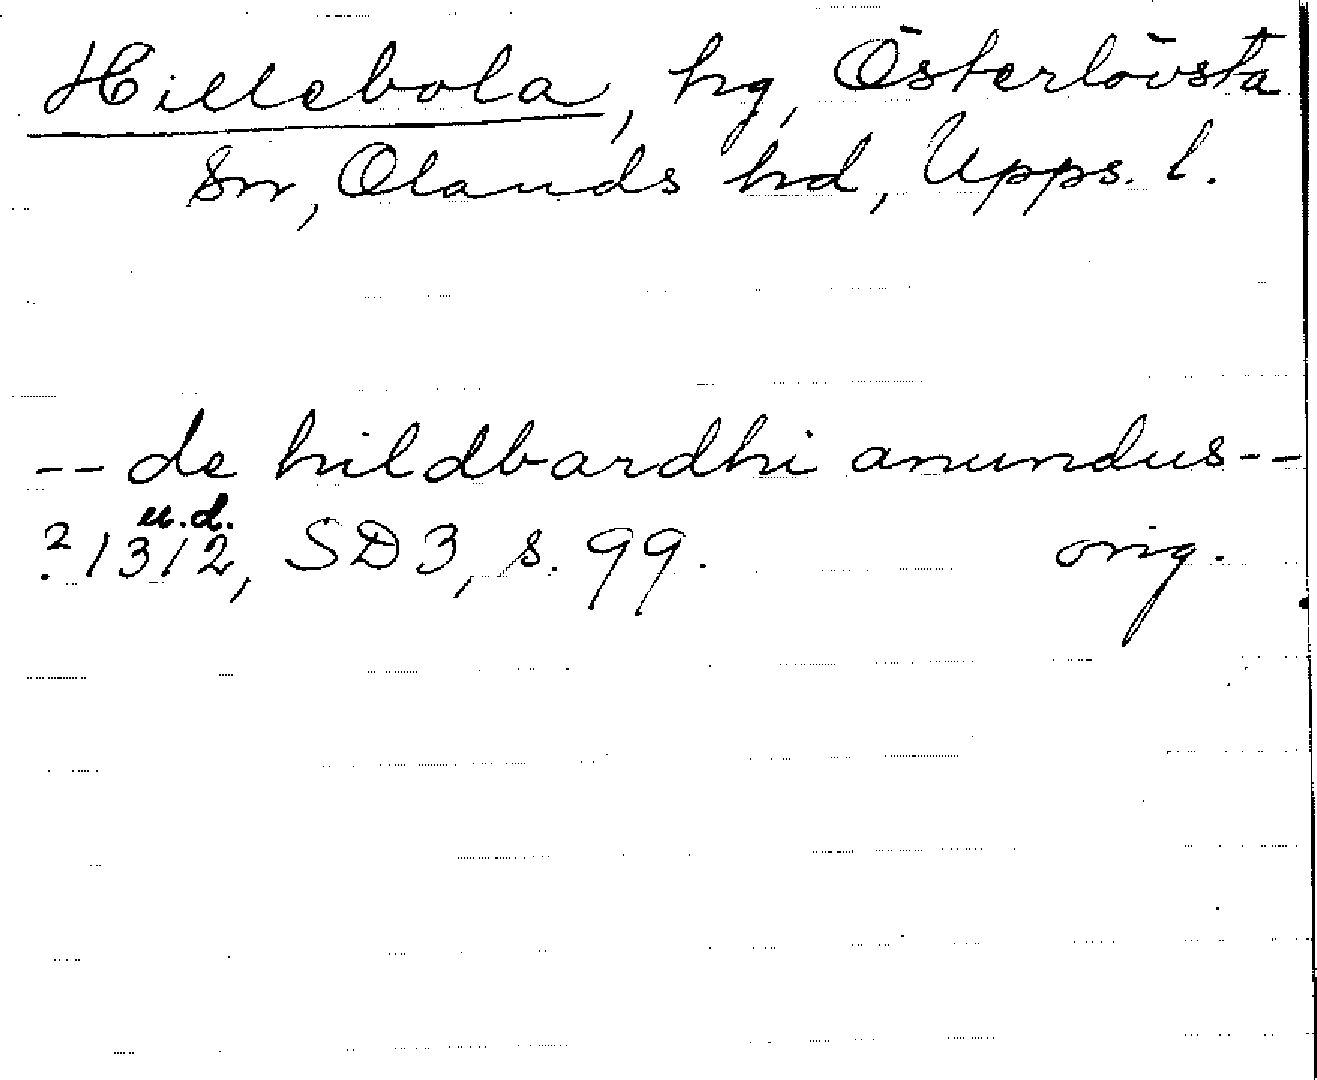 Hillebola, hg, Österlövsta
sn, Olands hd, Upps. l.
-- de hildbardhi anundus --
u.d.
? 1312, SD3, s. 99. orig.